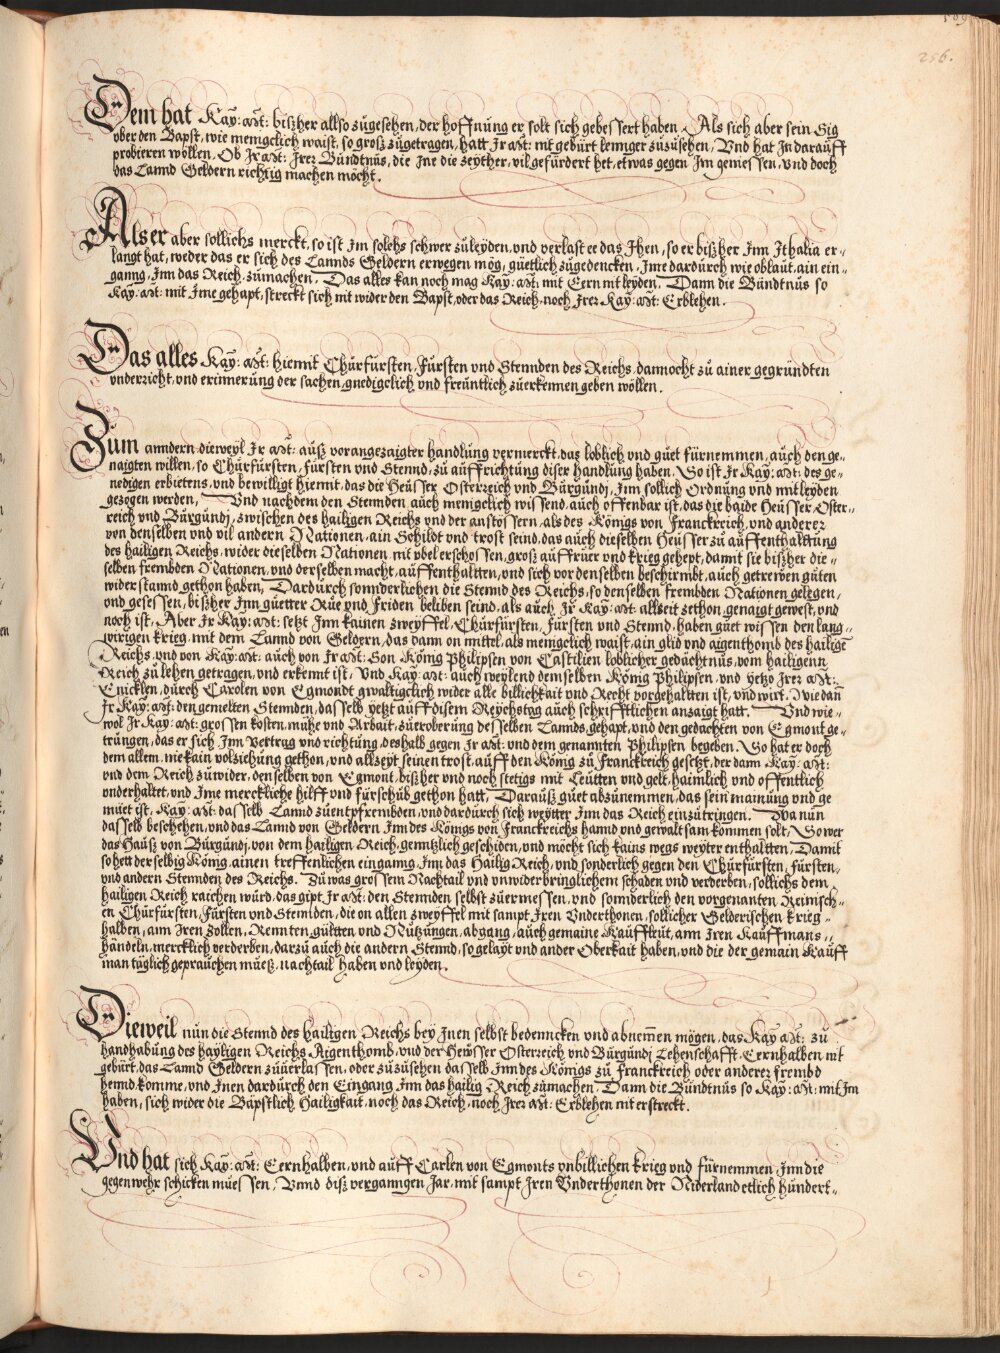 509
256.
Dem hat Kay: Mt: bißher allso zugesehen, der hoffnung er solt sich gebessert haben. Als sich aber sein Sig
vber den Bapst, wie menigclich waist, so groß zugetragen, hatt Ir Mt: nit gebürt lennger zuzusehen, Vnd hat In darauff
probieren wöllen, Ob Ir Mt: Irer Bündtnüs, die Ine die zeyther, vil gefürdert het, etwas gegen Im geniessen, vnd doch
das Lannd Geldern richtig machen möcht.
Als er aber sollichs merckt, so ist Im solchs schwer zuleyden, vnd verlast ee das Ihen, so er bißher Inn Ithalia er-
langt hat, weder das er sich des Lannds Geldern erwegen mög, güetlich zugedencken, Ime dardurch wie oblaut, ain ein-
ganng, Inn das Reich, zumachen. Das alles kan noch mag Kay: Mt: mit Eern nit leyden. Dann die Bündtnüs so
Kay: Mt: mit Ime gehapt, streckt sich nit wider den Bapst, oder das Reich, noch Irer Kay: Mt: Erblehen.
Das alles Kay: Mt: hiemit Churfürsten, Fürsten vnd Stennden des Reichs, dannocht zu ainer gegründten
vnderricht, vnd erinnerung der sachen, gnedigclich vnd freuntlich zuerkennen geben wöllen.
Zum anndern, dieweyl Ir Mt: auß vorangezaigter handlung vermerckt, das löblich vnd güet fürnemmen, auch den ge-
naigten willen, so Churfürsten, Fürsten vnd Stennd, zu auffrichtung diser handlung haben. So ist Ir Kay: Mt: des ge-
nedigen erbietens, vnd bewilligt hiemit, das die Heüsser Osterreich vnd Burgundj, Inn sollich Ordnung vnd mitleyden
gezogen werden. Vnd nachdem den Stennden auch menigclich wissend, auch offenbar ist, das die baide Heüsser Oster-
reich vnd Burgundj, zwischen des hailigen Reichs vnd der anstössern, als des Königs von Franckreich, vnd anderer
von denselben vnd vil andern Nationen, ain Schildt vnd trost seind, das auch dieselben Heüsser zu auffenthalttung
des hailigen Reichs, wider dieselben Nationen, mit vbel erschossen, groß auffruer vnd krieg gehept, damit sie bißher die-
selben frembden Nationen, vnd derselben macht, auffenthaltten, vnd sich vor denselben beschirmbt, auch getrewen güten
widerstannd gethon haben, Dardurch sonnderlichen die Stennd des Reichs, so denselben frembden Nationen gelegen,
vnd gesessen, bißher Inn güetter Rue vnd Friden beliben seind, als auch Ir Kay: Mt: allzeit zethon, genaigt gewest, vnd
noch ist, Aber Ir Kay: Mt: setzt Inn kainen zweyffel, Churfürsten, Fürsten vnd Stennd, haben güet wissen den lang-
wirigen krieg, mit dem Lannd von Geldern, das dann on mittel, als menigclich waist, ain glid vnd aigenthomb des hailigen
Reichs, vnd von Kay: Mt: auch von Ir Mt: Son König Philipsen von Castilien loblicher gedächtnüs, vom hailigenn
Reich zu lehen getragen, vnd erkennt ist, Vnd Kay: Mt: auch weylend demselben König Philipsen, vnd yetzo Irer Mt:
Enicklen, durch Carolen von Egmondt gwaltigclich wider alle billichkait vnd Recht vorgehaltten ist, vnd wirt. Wie dan
Ir Kay: Mt: den gemelten Stennden, dasselb yetzt auff disem Reychstag auch schrifftlichen anzaigt hatt. Vnd wie-
wol Ir Kay: Mt: grossen kosten, mühe vnd Arbait, zueroberung desselben Lannds, gehapt, vnd den gedachten von Egmont ge-
trüngen, das er sich Inn Vertrag vnd richtung, deshalb gegen Ir Mt: vnd dem genannten Philipsen begeben. So hat er doch
dem allem, nie kain volziehung gethon, vnd allzeyt seinen trost, auff den König zu Franckreich gesetzt, der dann Kay: Mt:
vnd dem Reich zuwider, denselben von Egmont, bißher vnd noch stetigs mit Leütten vnd gelt, haimlich vnd offentlich
vnderhaltet, vnd Ime merckliche hilff vnd fürschub gethon hatt, Darauß güet abzunemmen, das sein mainung vnd ge
müet ist, Kay: Mt: dasselb Lannd zuentpfrembden, vnd dardurch sich weytter Inn das Reich einzutringen. Wa nun
dasselb beschehen, vnd das Lannd von Geldern Inn des Königs von Franckreichs hannd vnd gewaltsam kommen solt, So wer
das Hauß von Burgundj, von dem hailigen Reich, genntzlich geschiden, vnd möcht sich kains wegs weyter enthaltten, Damit
so hett derselbig König, ainen treffenlichen einganng, Inn das Hailig Reich, vnd sonderlich gegen den Churfürsten, Fürsten,
vnd andern Stennden des Reichs. Zu was grossem Nachtail vnd vnwiderbringlichem schaden vnd verderben, sollichs dem
hailigen Reich raichen würd, das gipt Ir Mt: den Stennden selbst zuermessen, vnd sonnderlich den vorgenanten Reinisch-
en Churfürsten, Fürsten vnd Stennden, die on allen zweyffel mit sampt Iren Vnderthonen, sollicher Gelderischen krieg-
halben, ann Iren Zollen, Rennten gültten vnd Nützungen, abgang, auch gemaine Kauffleut, ann Iren Kauffmans-
händeln, mercklich verderben, darzu auch die andern Stennd, so gelayt vnd ander Oberkait haben, vnd die der gemain Kauff
man täglich geprauchen müeß, nachtail haben vnd leyden.
Dieweil nun die Stennd des hailigen Reichs bey Inen selbst bedenncken vnd abnemen mögen, das Kay Mt: zu
handhabung des hayligen Reichs Aigenthomb, vnd der Hewsser Osterreich vnd Burgundj Lehenschafft, Eernhalben nit
gebürt, das Lannd Geldern zuuerlassen, oder zuzusehen dasselb Inn des Königs zu Franckreich oder anderer frembd
hennd komme, vnd Inen dardurch den Eingang Inn das hailig Reich zumachen. Dann die Bündtnus so Kay: Mt: mit Im
haben, sich wider die Bäpstlich Hailigkait, noch das Reich, noch Irer Mt: Erblehen nit erstreckt.
Vnd hat sich Kay: Mt: Eernhalben, vnd auff Carlen von Egmonts vnbillichen krieg vnd fürnemmen, Inn die
gegenwehr schicken müessen, Vnnd diß verganngen Jar, mit sampt Iren Vnderthonen der Niderland etlich hundert-